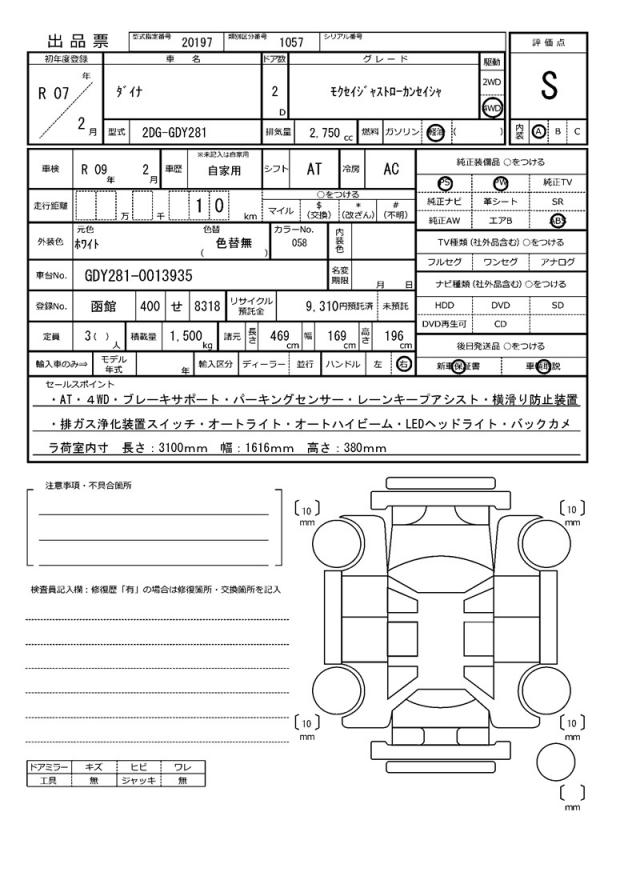 出品票 型式指定番号 20197 類別区分番号 1057 シリアル番号
初年度登録 車名 ドア数 グレード 駆動 評価点
R 07 年 2 月 ﾀﾞｲﾅ 2 D ﾓｸｾｲｼﾞｬｽﾄﾛｰｶﾝｾｲｼｬ 2WD 4WD S
型式 2DG-GDY281 排気量 2,750 cc 燃料 ガソリン 軽油 ( ) 内装 A B C
車検 R 09 年 2 月 車歴 ※未記入は自家用 自家用 シフト AT 冷房 AC 純正装備品 ○をつける
PS PW 純正TV
走行距離 万 千 1 0 km ○をつける
マイル $ (交換) * (改ざん) # (不明)
純正ナビ 革シート SR
純正AW エアB ABS
外装色 元色 ﾎﾜｲﾄ 色替 色替無 ( ) カラーNo. 058 内装色
TV種類 (社外品含む) ○をつける
フルセグ ワンセグ アナログ
車台No. GDY281-0013935 名変期限 月 日
ナビ種類 (社外品含む) ○をつける
登録No. 函館 400 せ 8318 リサイクル預託金 9,310円預託済 未預託
HDD DVD SD
DVD再生可 CD
定員 3( ) 人 積載量 1,500 kg 諸元 長さ 469 cm 幅 169 cm 高さ 196 cm
後日発送品 ○をつける
輸入車のみ⇨ モデル年式 年 輸入区分 ディーラー 並行 ハンドル 左 右
新車保証書 車輌取説
セールスポイント
・AT・４WD・ブレーキサポート・パーキングセンサー・レーンキープアシスト・横滑り防止装置
・排ガス浄化装置スイッチ・オートライト・オートハイビーム・LEDヘッドライト・バックカメ
ラ荷室内寸　長さ：3100mm　幅：1616mm　高さ：380mm
注意事項・不具合箇所
〔10〕mm 〔10〕mm
検査員記入欄：修復歴「有」の場合は修復箇所・交換箇所を記入
〔10〕mm 〔10〕mm
ドアミラー キズ ヒビ ワレ
工具 無 ジャッキ 無
〔 〕mm